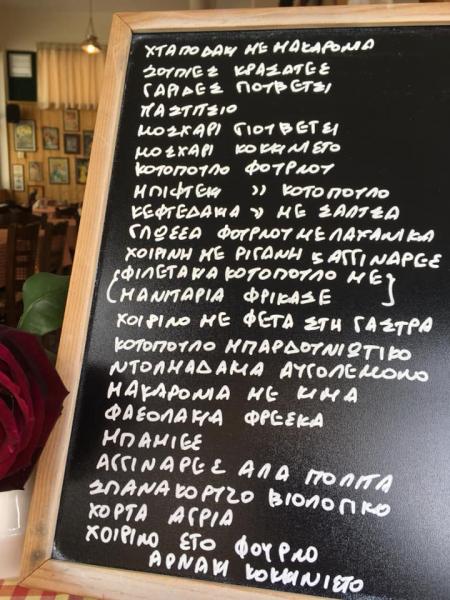 ΧΤΑΠΟΔΑΚΙ ΜΕ ΜΑΚΑΡΟΝΙΑ
ΣΟΥΠΙΕΣ ΚΡΑΣΑΤΕΣ
ΓΑΡΙΔΕΣ ΓΙΟΥΒΕΤΣΙ
ΠΑΣΤΙΤΣΙΟ
ΜΟΣΧΑΡΙ ΓΙΟΥΒΕΤΣΙ
ΜΟΣΧΑΡΙ ΚΟΚΚΙΝΙΣΤΟ
ΚΟΤΟΠΟΥΛΟ ΦΟΥΡΝΟΥ
ΜΠΙΦΤΕΚΙ " ΚΟΤΟΠΟΥΛΟ
ΚΕΦΤΕΔΑΚΙΑ " ΜΕ ΣΑΛΤΣΑ
ΓΛΩΣΣΑ ΦΟΥΡΝΟΥ ΜΕ ΛΑΧΑΝΙΚΑ
ΧΟΙΡΙΝΗ ΜΕ ΡΙΓΑΝΗ & ΑΓΓΙΝΑΡΕΣ
(ΦΙΛΕΤΑΚΙΑ ΚΟΤΟΠΟΥΛΟ ΜΕ
ΜΑΝΙΤΑΡΙΑ ΦΡΙΚΑΣΕ)
ΧΟΙΡΙΝΟ ΜΕ ΦΕΤΑ ΣΤΗ ΓΑΣΤΡΑ
ΚΟΤΟΠΟΥΛΟ ΜΠΑΡΔΟΥΝΙΩΤΙΚΟ
ΝΤΟΛΜΑΔΑΚΙΑ ΑΥΓΟΛΕΜΟΝΟ
ΜΑΚΑΡΟΝΙΑ ΜΕ ΚΙΜΑ
ΦΑΣΟΛΑΚΙΑ ΦΡΕΣΚΑ
ΜΠΑΜΙΕΣ
ΑΓΓΙΝΑΡΕΣ ΑΛΑ ΠΟΛΙΤΑ
ΣΠΑΝΑΚΟΡΥΖΟ ΒΙΟΛΟΓΙΚΟ
ΧΟΡΤΑ ΑΓΡΙΑ
ΧΟΙΡΙΝΟ ΣΤΟ ΦΟΥΡΝΟ
ΑΡΝΑΚΙ ΚΟΚΚΙΝΙΣΤΟ